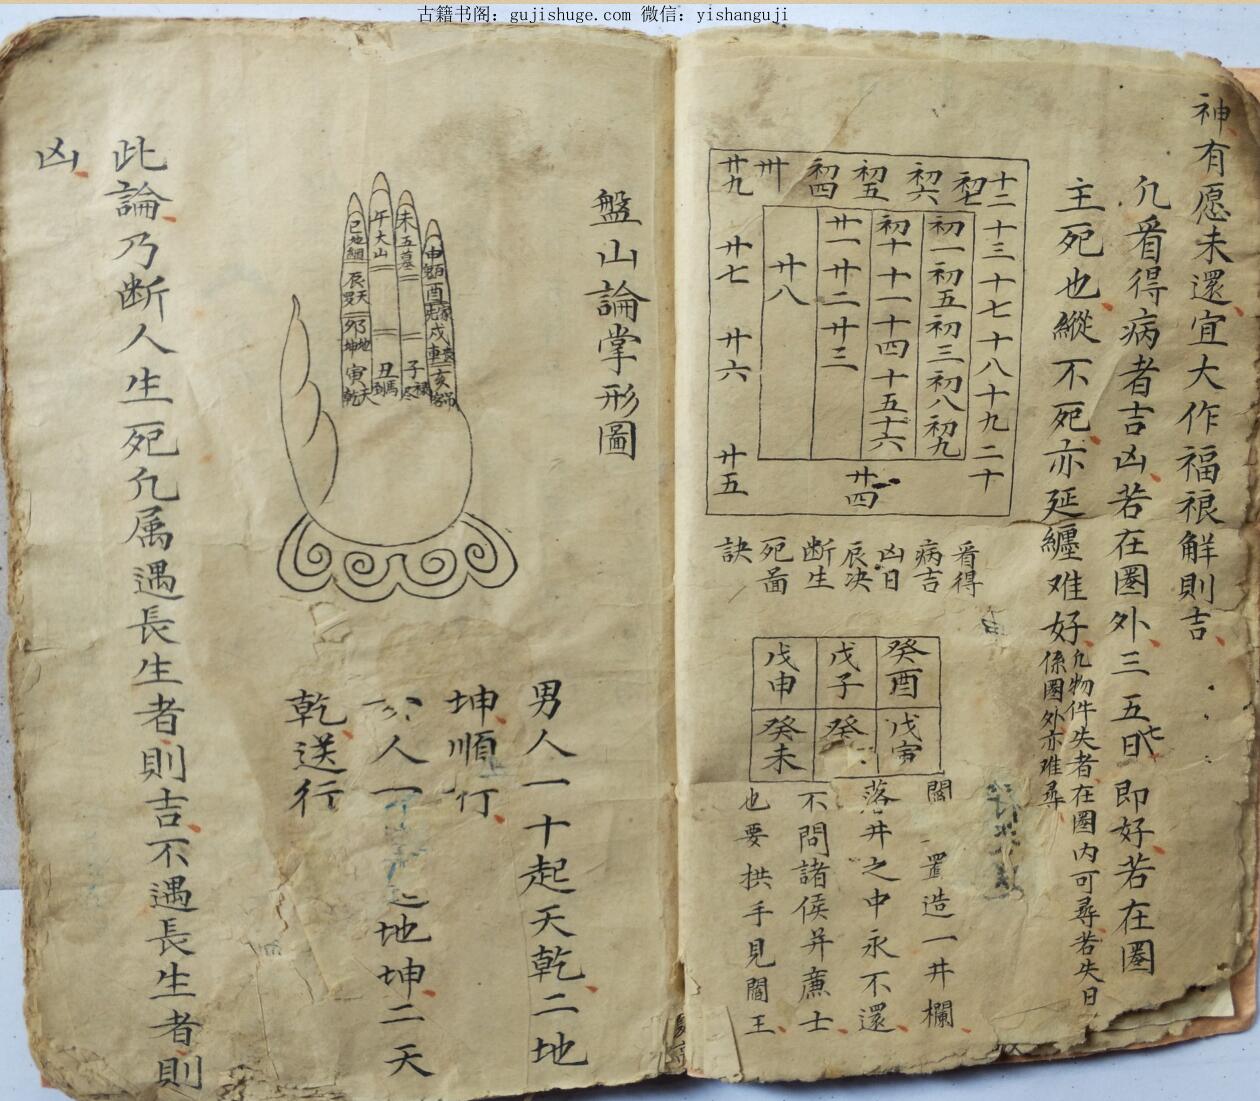 古籍书阁：gujishuge.com 微信：yishanguji
神有愿未還宜大作福祿解則吉
凢看得病者吉凶若在圈外三五七日即好若在圈
主死也縱不死亦延纏难好
凢物件失者在圈内可尋若失日
係圈外亦难尋
十二 十三 十七 十八 十九 二十
初七
初六
初五
初四
卅
廿九
廿七
廿六
廿五
廿四
初一 初五 初三 初八 初九
初十 十一 十四 十五 十六
廿一 廿二 廿三
廿八
看得
病吉
凶日
辰决
断生
死啚
訣
癸酉
戊子
戊申
戊寅
癸
癸未
閻 置造一井欄
落井之中永不還
不問諸侯并亷士
也要拱手見閻王
盤山論掌形圖
申 酉 戌 亥
未五墓
子
午大山
丑
巳地網
辰天
夘地
寅天
乾
坤
男人一十起天乾二地
坤順行
人一 地坤二天
乾送行
此論乃断人生死凢属遇長生者則吉不遇長生者則
凶